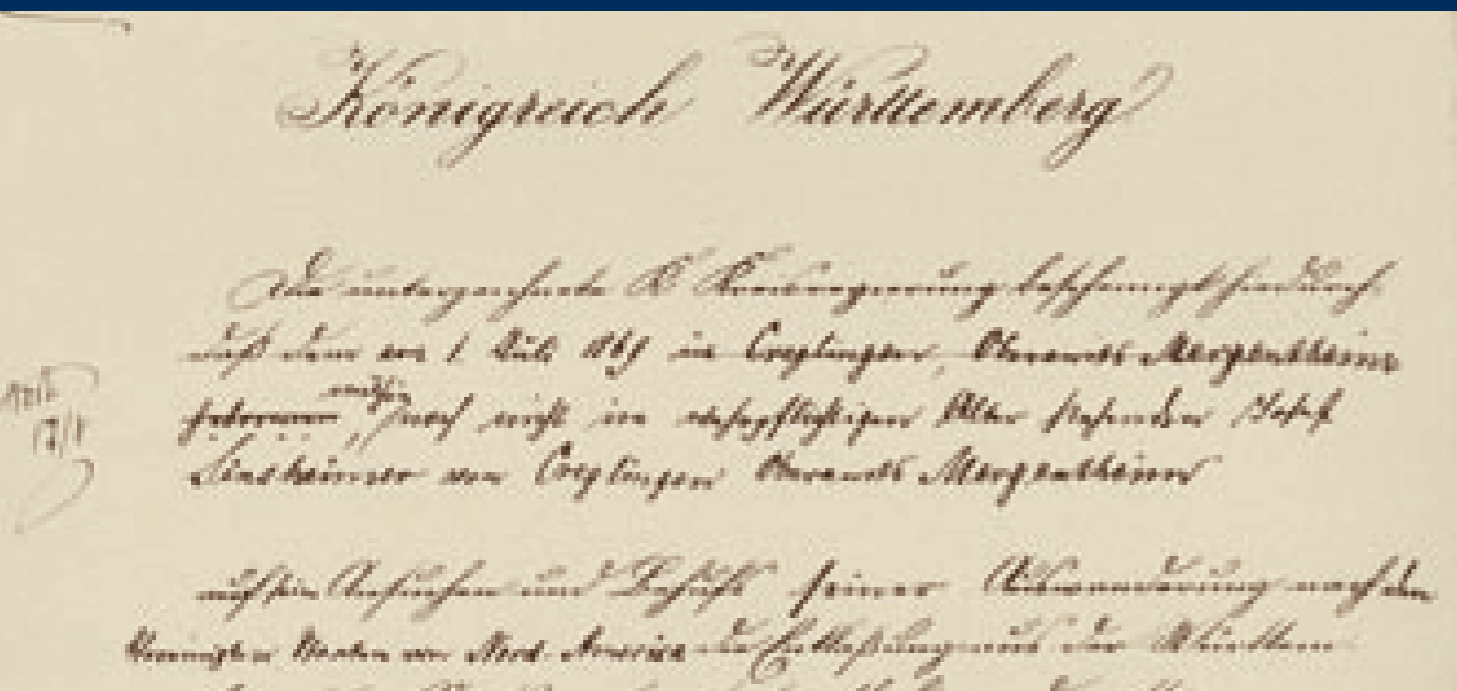 Königreich Württemberg
Die unterzeichnete K. Kreisregierung bescheinigt hierdurch
daß dem am 1. Juli 1869 in Creglingen, Oberamts Mergentheim
geborenen, mithin noch nicht im wehrpflichtigen Alter stehenden Josef
Sinsheimer von Creglingen Oberamts Mergentheim
auf sein Ansuchen und Behufs seiner Auswanderung nach den
Vereinigten Staaten von Nord-America die Entlassung aus der Württem-